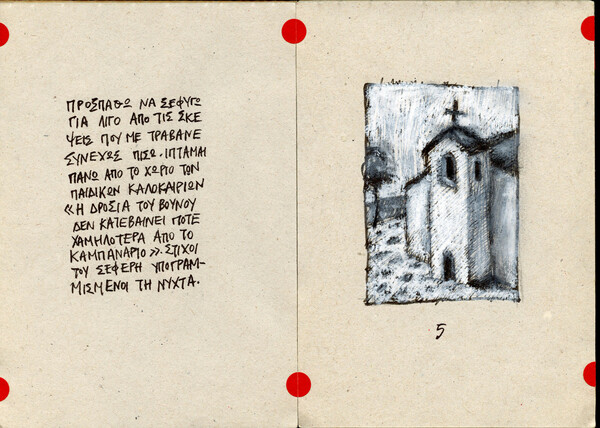 ΠΡΟΣΠΑΘΩ ΝΑ ΞΕΦΥΓΩ
ΓΙΑ ΛΙΓΟ ΑΠΟ ΤΙΣ ΣΚΕ
ΨΕΙΣ ΠΟΥ ΜΕ ΤΡΑΒΑΝΕ
ΣΥΝΕΧΩΣ ΠΙΣΩ. ΙΠΤΑΜΑΙ
ΠΑΝΩ ΑΠΟ ΤΟ ΧΩΡΙΟ ΤΩΝ
ΠΑΙΔΙΚΩΝ ΚΑΛΟΚΑΙΡΙΩΝ
«Η ΔΡΟΣΙΑ ΤΟΥ ΒΟΥΝΟΥ
ΔΕΝ ΚΑΤΕΒΑΙΝΕΙ ΠΟΤΕ
ΧΑΜΗΛΟΤΕΡΑ ΑΠΟ ΤΟ
ΚΑΜΠΑΝΑΡΙΟ». ΣΤΙΧΟΙ
ΤΟΥ ΣΕΦΕΡΗ ΥΠΟΓΡΑΜ-
ΜΙΣΜΕΝΟΙ ΤΗ ΝΥΧΤΑ.
5